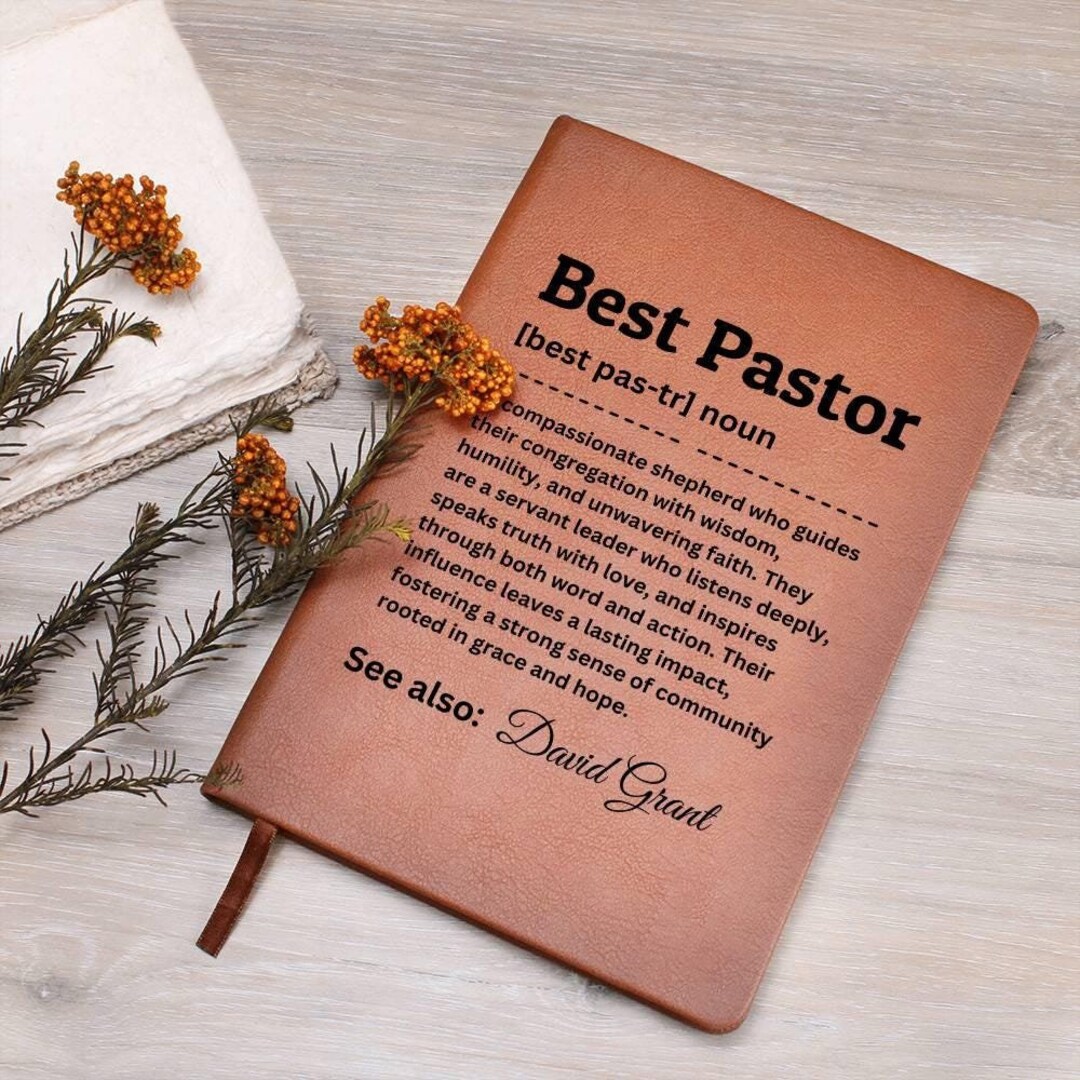 Best Pastor
[best pas-tr] noun
compassionate shepherd who guides
their congregation with wisdom,
humility, and unwavering faith. They
are a servant leader who listens deeply,
speaks truth with love, and inspires
through both word and action. Their
influence leaves a lasting impact,
fostering a strong sense of community
rooted in grace and hope.
See also: David Grant